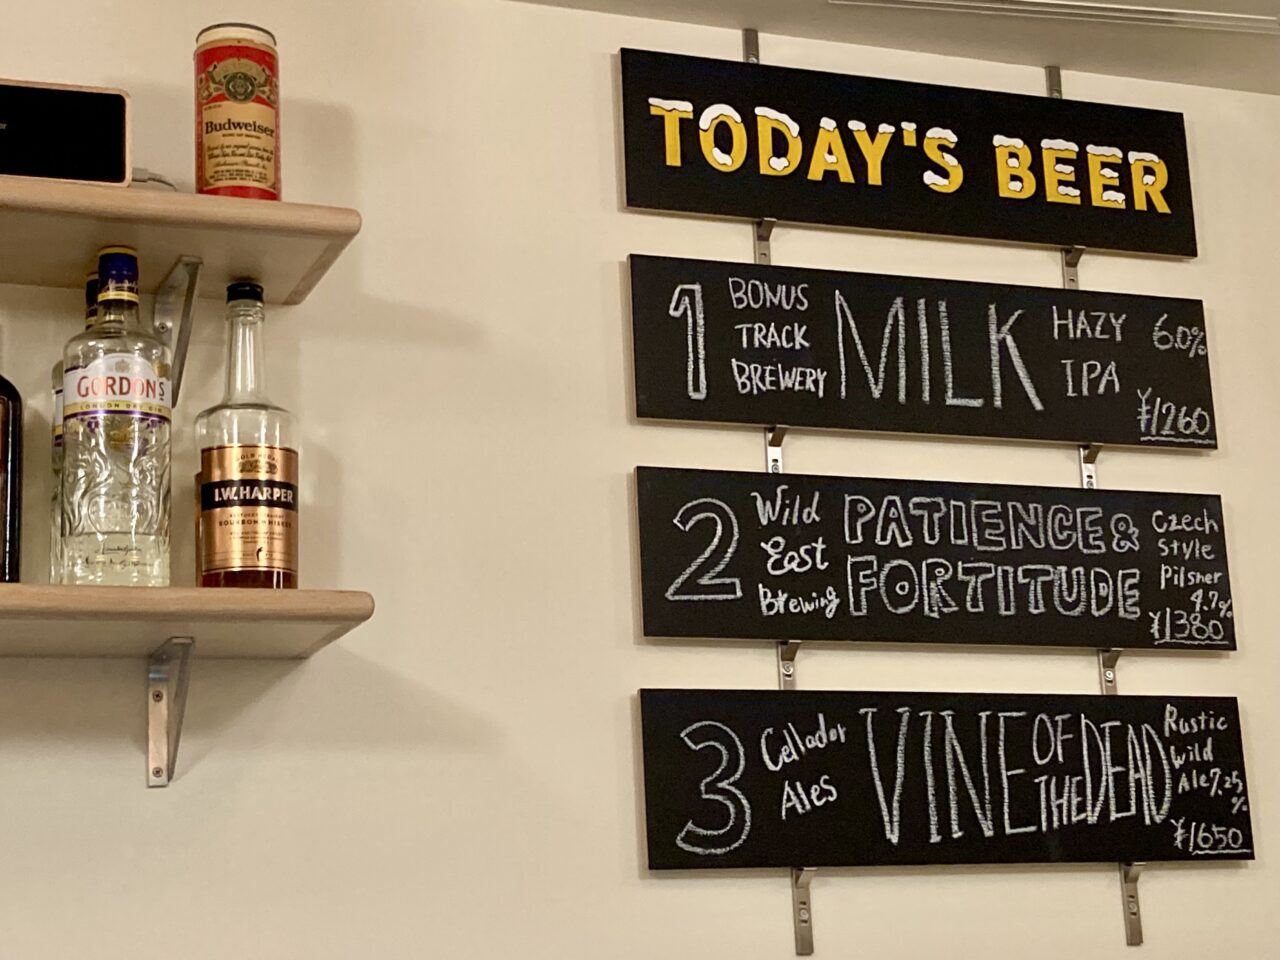 Budweiser
GORDON'S
LONDON DRY GIN
GOLD MEDAL
I.W. HARPER
BOURBON WHISKEY
TODAY'S BEER
1
BONUS
TRACK
BREWERY
MILK
HAZY
IPA
6.0%
¥1260
2
Wild
East
Brewing
PATIENCE &
FORTITUDE
Czech
Style
Pilsner
4.7%
¥1380
3
Cellador
Ales
VINE
OF
THE
DEAD
Rustic
Wild
Ale 7.25
%
¥1650